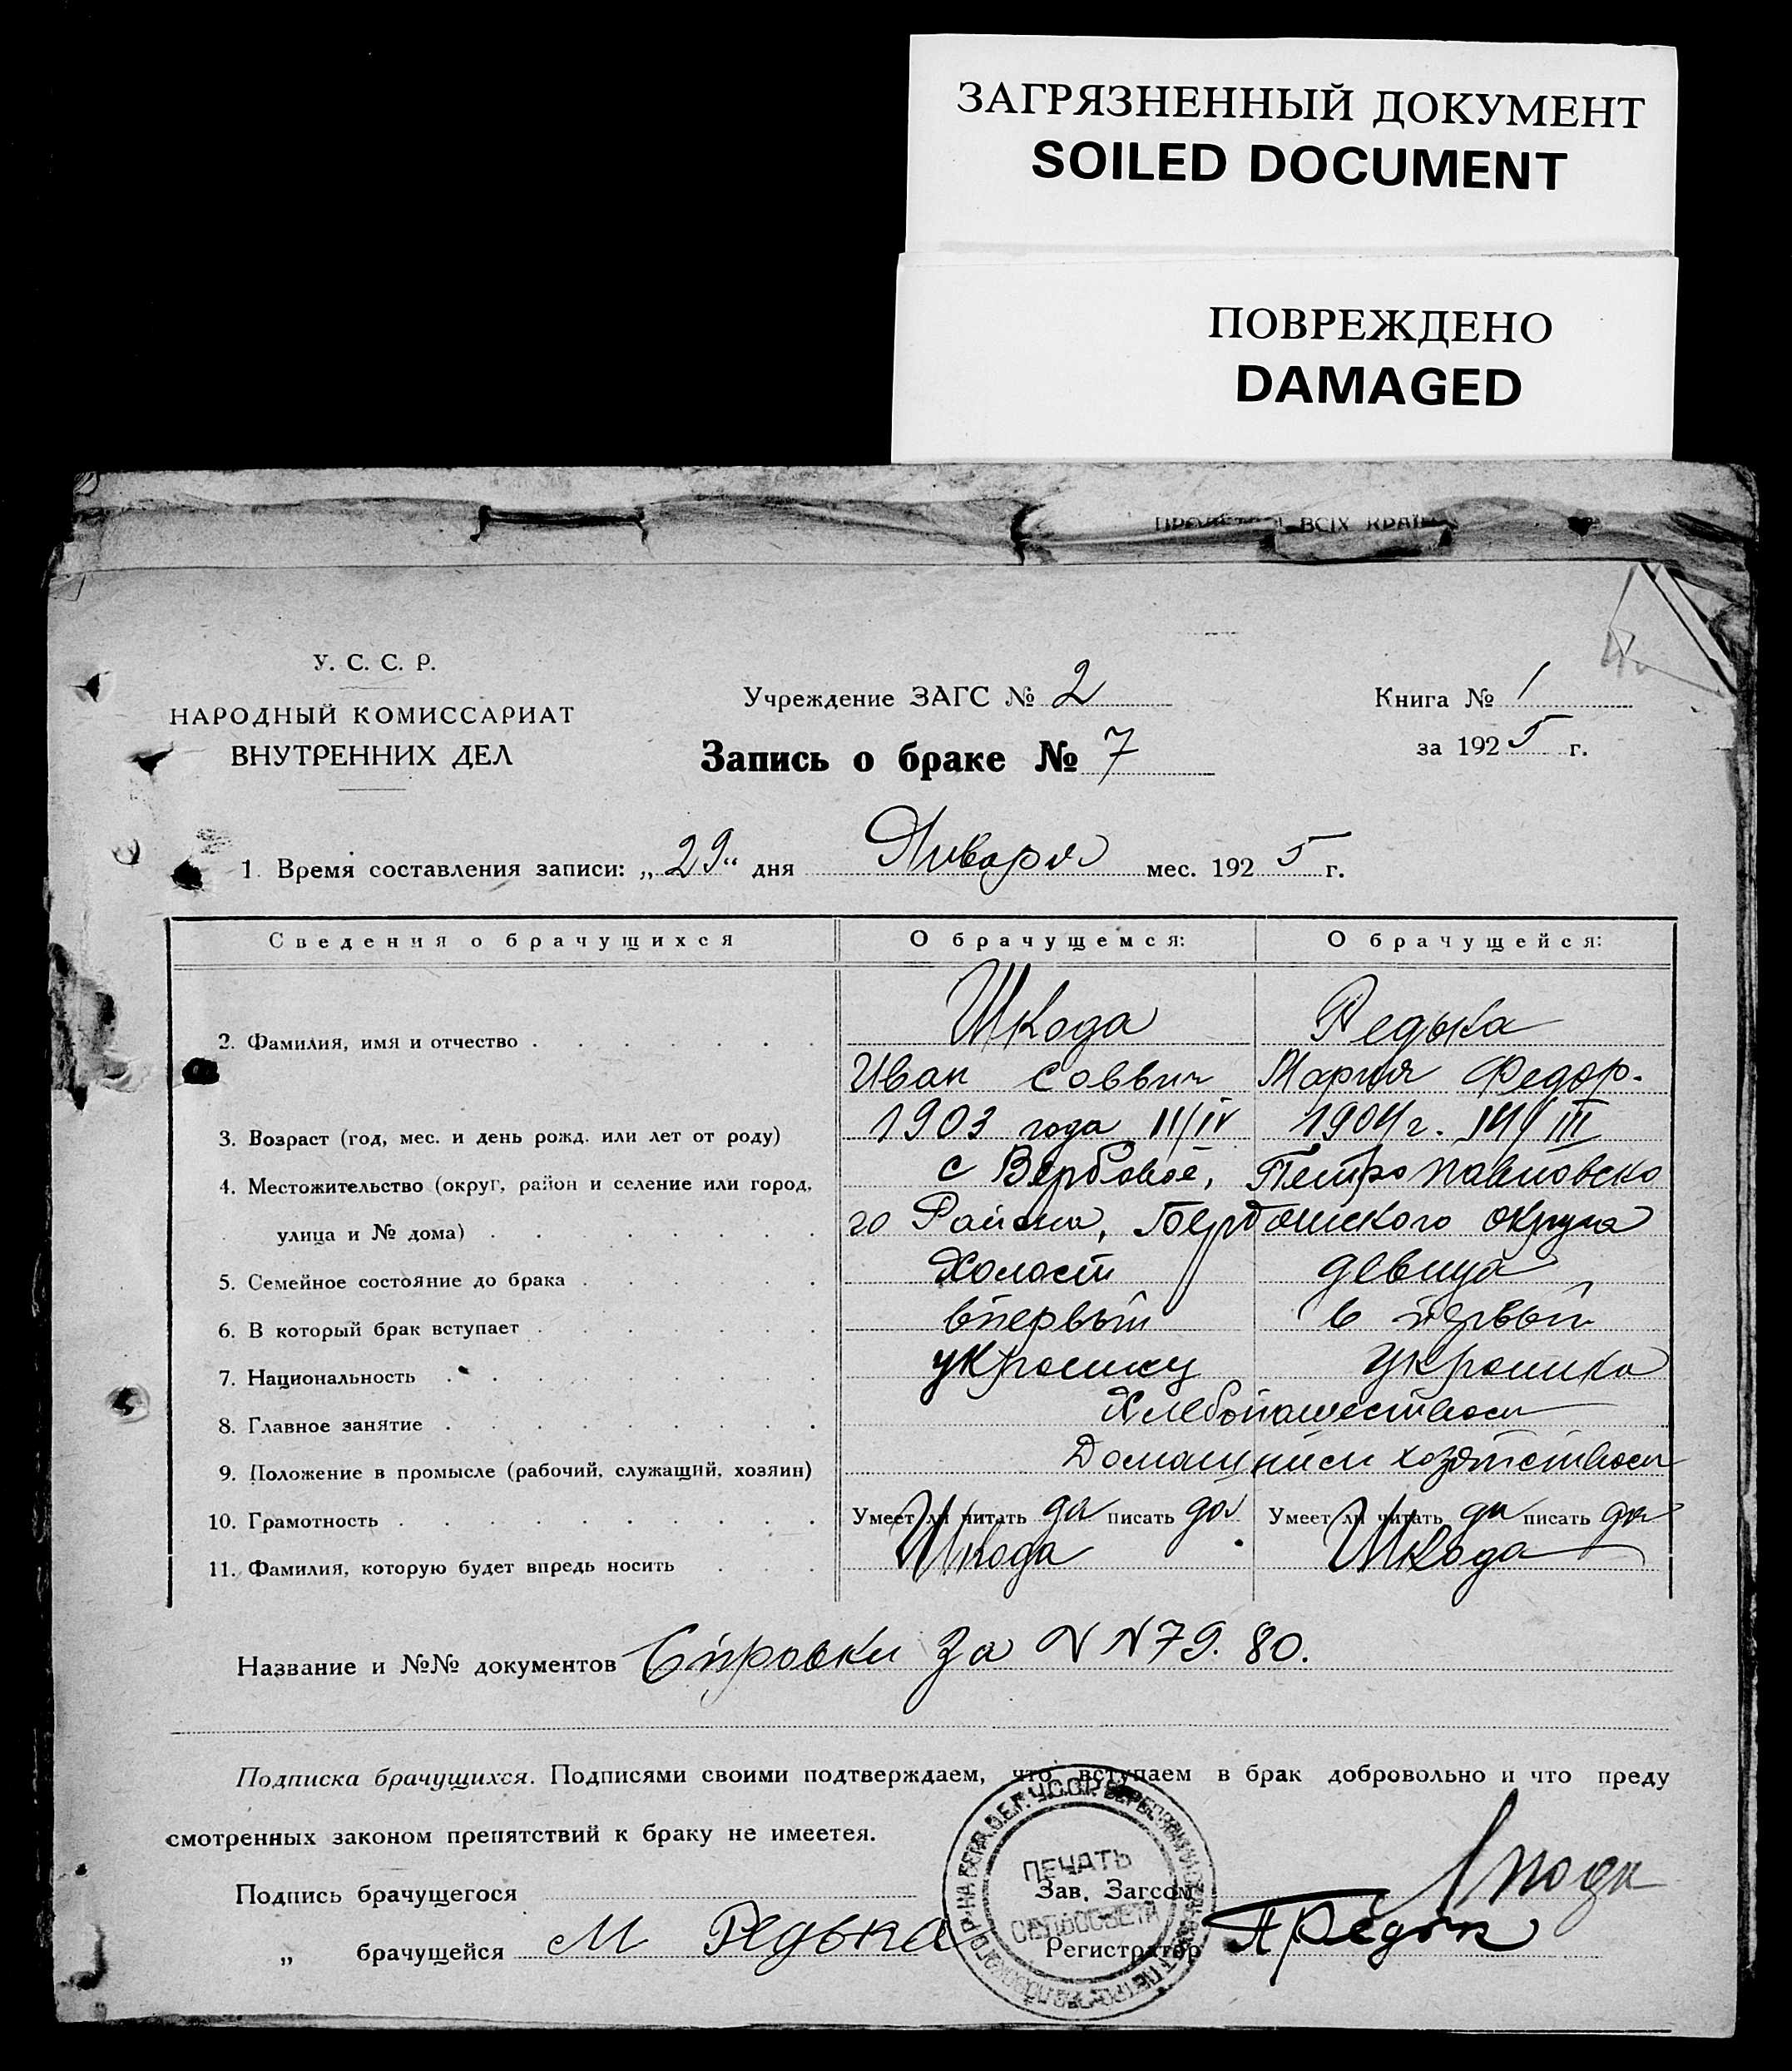 ЗАГРЯЗНЕННЫЙ ДОКУМЕНТ
SOILED DOCUMENT
ПОВРЕЖДЕНО
DAMAGED
ВСІХ КРАЇ
У. С. С. Р.
НАРОДНЫЙ КОМИССАРИАТ
ВНУТРЕННИХ ДЕЛ
Учреждение ЗАГС № 2
Книга № 1
Запись о браке № 7
за 1925 г.
1. Время составления записи: „29“ дня Января мес. 1925 г.
Сведения о брачущихся О брачущемся: О брачущейся:
2. Фамилия, имя и отчество Шкода Редька
Иван Саввич Мария Федор.
3. Возраст (год, мес. и день рожд. или лет от роду) 1903 года 11/IV 1904 г. 14/III
4. Местожительство (округ, район и селение или город, с Вербовое, Петропавловско
улица и № дома) го Района, Бердянского округа
5. Семейное состояние до брака Холост девица
6. В который брак вступает впервый в первый
7. Национальность украинец Украинка
8. Главное занятие Хлебопашеством
9. Положение в промысле (рабочий, служащий, хозяин) Домашним хозяйством
10. Грамотность Умеет ли читать да писать да Умеет ли читать да писать да
11. Фамилия, которую будет впредь носить Шкода Шкода
Название и №№ документов Справки за N N 79. 80.
Подписка брачущихся. Подписями своими подтверждаем, что вступаем в брак добровольно и что преду
смотренных законом препятствий к браку не имеетея.
ПЕЧАТЬ
СЕЛЬСОВЕТА
Подпись брачущегося Зав. Загсом
„ брачущейся М Редька Регистратор